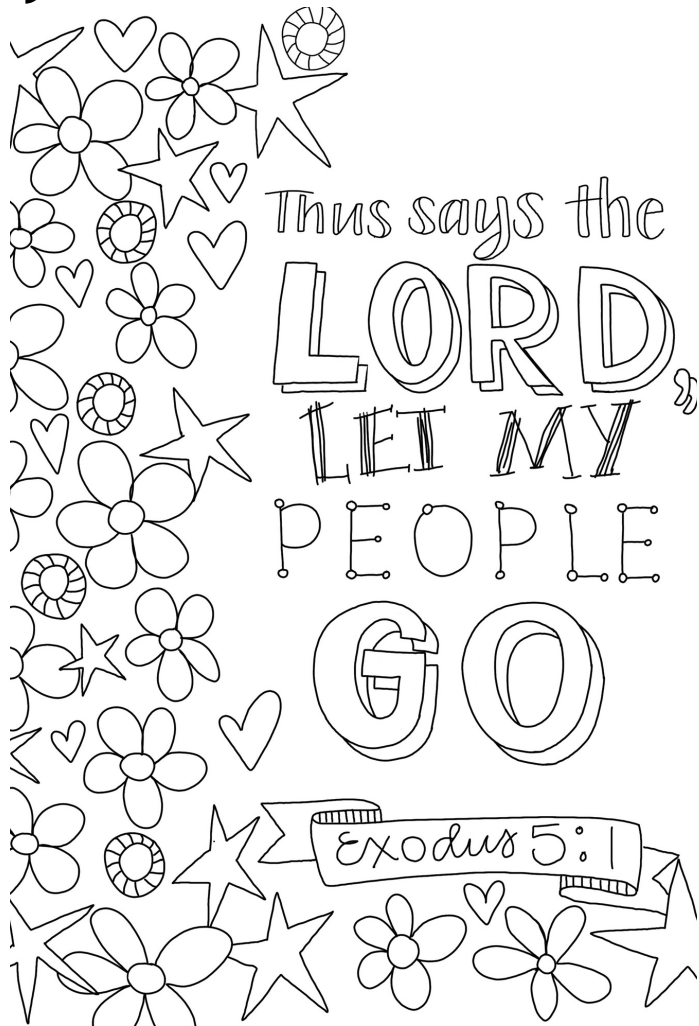 Thus says the
LORD,
LET MY
PEOPLE
GO
Exodus 5:1